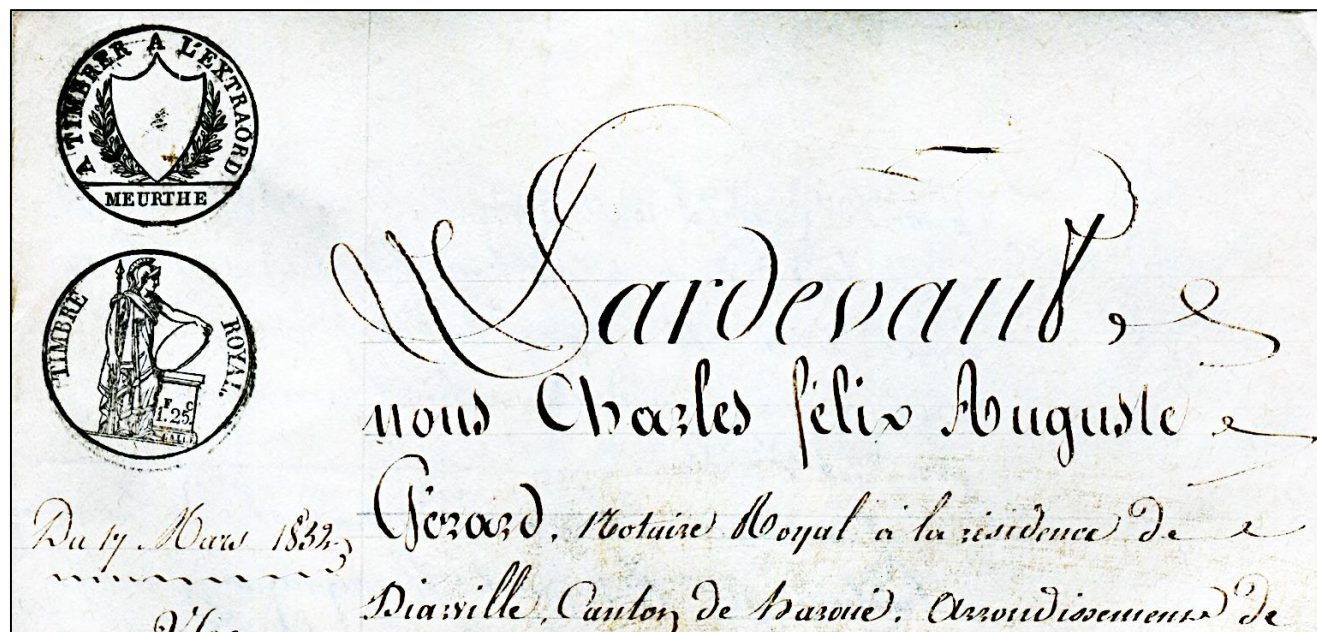 A TIMBRER A L'EXTRAORD
MEURTHE
TIMBRE ROYAL.
F C
1.25
Pardevant,
nous Charles félix Auguste
Gérard, Notaire Royal à la résidence de
Diarville, Canton de haroué, arrondissement de
Du 17 Mars 1832